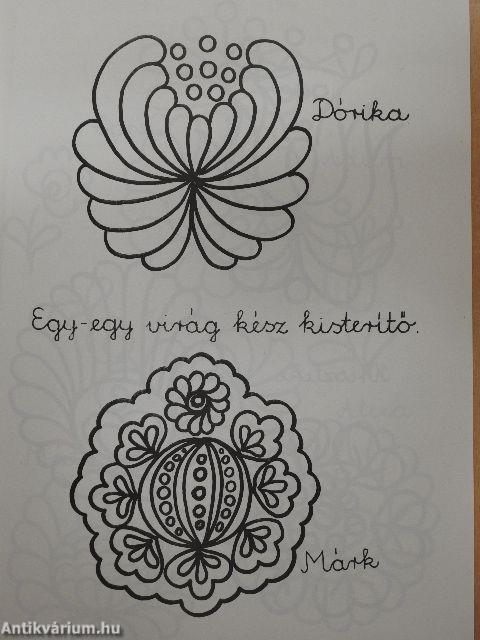 Dórika
Egy-egy virág kész kisterítő.
Márk
Antikvárium.hu